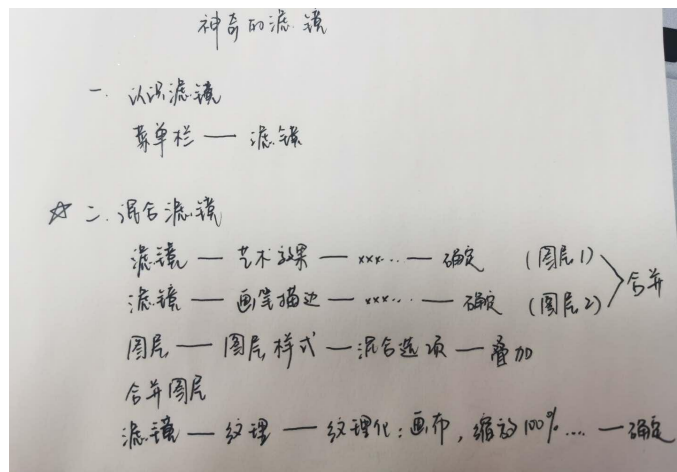 神奇的滤镜
一. 认识滤镜
菜单栏 — 滤镜
☆ 二. 混合滤镜
滤镜 — 艺术效果 — xxx... — 确定 (图层1)
合并
滤镜 — 画笔描边 — xxx... — 确定 (图层2)
图层 — 图层样式 — 混合选项 — 叠加
合并图层
滤镜 — 纹理 — 纹理化：画布，缩放100%.... — 确定